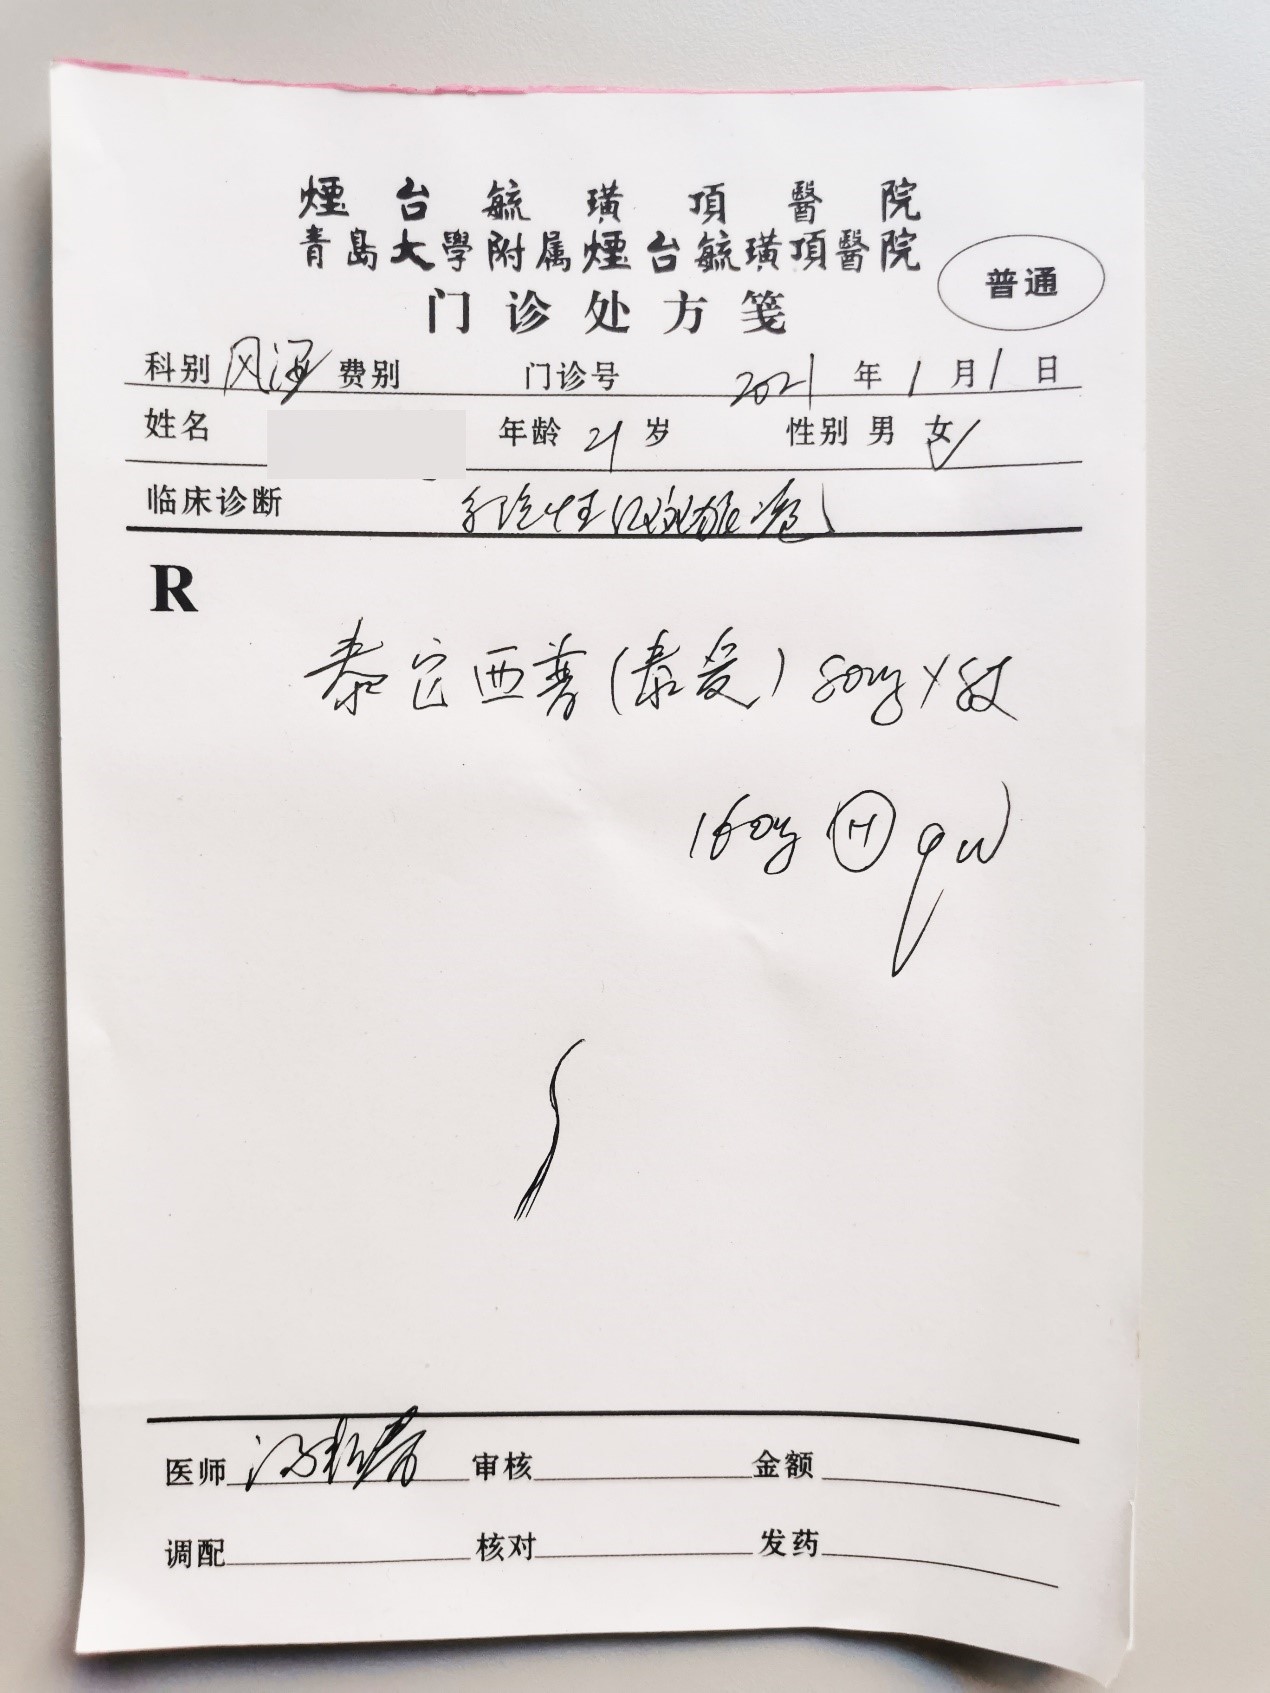 煙台毓璜頂醫院
青島大學附属煙台毓璜頂醫院
普通
门诊处方笺
科别 风湿 费别 门诊号 2021 年 1 月 1 日
姓名 年龄 21 岁 性别 男 女✓
临床诊断 系统性红斑狼疮
R
泰它西普(泰爱) 80mg × 8支
160mg Ⓗ qw
医师 审核 金额
调配 核对 发药